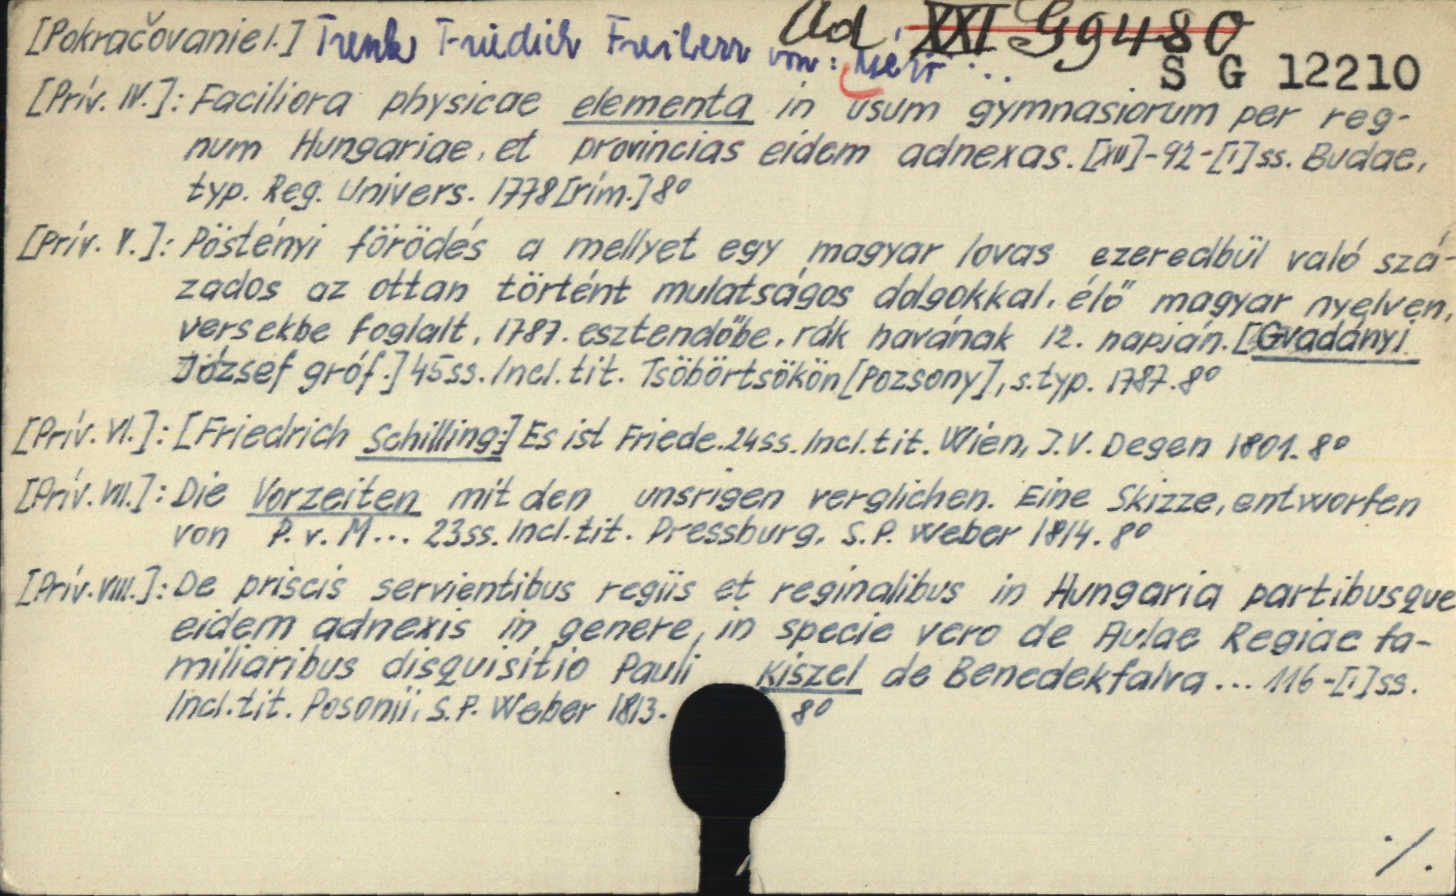 [Pokračovanie I.] Trenk Friedrich Freiherr von: Ad XXI G9480
S G 12210
[Prív. IV.]: Faciliora physicae elementa in usum gymnasiorum per reg-
num Hungariae, et provincias eidem adnexas. [XIV]-92-[1]ss. Budae,
typ. Reg. Univers. 1778[rím.] 8°
[Prív. V.]: Pöstényi förödés a mellyet egy magyar lovas ezeredbül való szá-
zados az ottan történt mulatságos dolgokkal, élő magyar nyelven,
versekbe foglalt, 1787. esztendőbe, rák havának 12. napján. [Gvadányi
József gróf.] 45ss. Incl. tit. Tsöbörtsökön [Pozsony], s. typ. 1787. 8°
[Prív. VI.]: [Friedrich Schilling:] Es ist Friede. 24ss. Incl. tit. Wien, J.V. Degen 1801. 8°
[Prív. VII.]: Die Vorzeiten mit den unsrigen verglichen. Eine Skizze, entworfen
von P. v. M... 23ss. Incl. tit. Pressburg, S. P. Weber 1814. 8°
[Prív. VIII.]: De priscis servientibus regiis et reginalibus in Hungaria partibusque
eidem adnexis in genere, in specie vero de Aulae Regiae fa-
miliaribus disquisitio Pauli Kiszel de Benedekfalva ... 116-[1]ss.
Incl. tit. Posonii, S. P. Weber 1813. 8°
./.